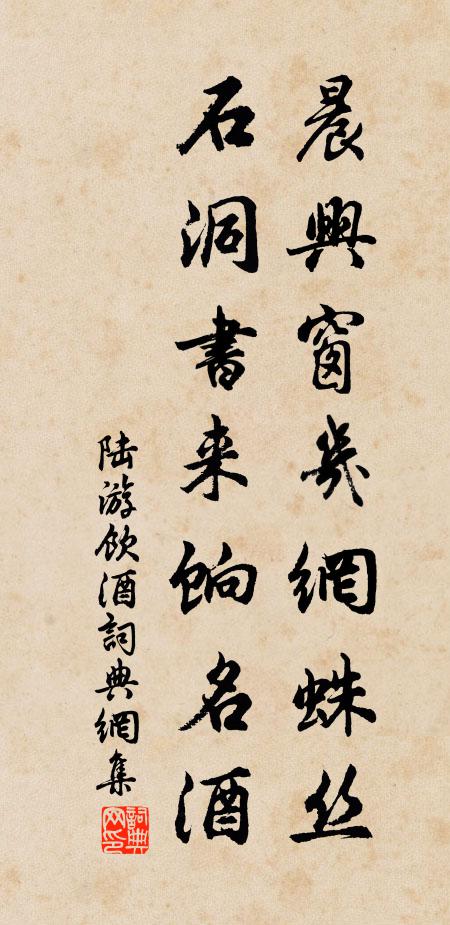 晨興窗幾網蛛丝
石洞書来餉名酒
陆游飲酒詞典網集
詞典网印